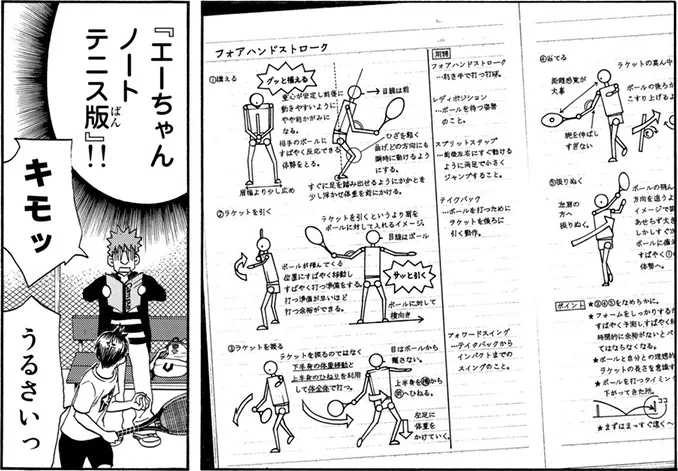 『エーちゃん
ノート
テニス版』!!
ばん
キモッ
うるさいっ
フォアハンドストローク
①構える
グッと構える
重心が安定し前後に
動きやすいように
やや前かがみに
なる。
相手のボールに
すばやく反応できる
体勢をとる。
肩幅より少し広め
目線は前
ひざを軽く
曲げ、どの方向にも
瞬時に動けるよう
にする。
すぐに足を踏み出せるようにかかとを
少し浮かせ体重を前にかける。
②ラケットを引く
ラケットを引くというより肩を
ボールに対して入れるイメージ。
目線はボール
ボールが飛んでくる
位置にすばやく移動し
すばやく打つ準備をする。
打つ準備が早いほど
打つ余裕ができる。
サッと引く
ボールに対して
横向き
③ラケットを振る
ラケットを振るのではなく
下半身の体重移動と
上半身のひねりを利用
して体全体で打つ。
目はボールから
離さない。
上半身を横から
前へひねる。
左足に
体重を
かけていく。
用語
フォアハンドストローク
…利き手で打つ打球。
レディポジション
…ボールを待つ姿勢
のこと。
スプリットステップ
…前後左右にすぐ動ける
ように両足で小さく
ジャンプすること。
テイクバック
…ボールを打つために
ラケットを後ろに
引く動作。
フォワードスイング
…テイクバックから
インパクトまでの
スイングのこと。
④当てる
ラケットの真ん中
距離感覚が
大事
ボールの後ろか
こすり上げるよ
腕を伸ばし
すぎない
⑤振りぬく
左肩の
方へ
振りぬく。
ボールの飛ん
方向を追うよ
イメージで振
あせらず大き
しかしすぐ次
ボールに備え
すばやく①の
体勢へ。
ポイント
★③④⑤をなめらかに。
★フォームをしっかりするた
すばやく予測しすばやく移
時間的に余裕がないとベ
てはならなくなる。
★ボールと自分との理想的
ラケットの長さを意識す
★ボールを打つタイミン
下がってきた所。
ココ
★まずはまっすぐ遠くへ